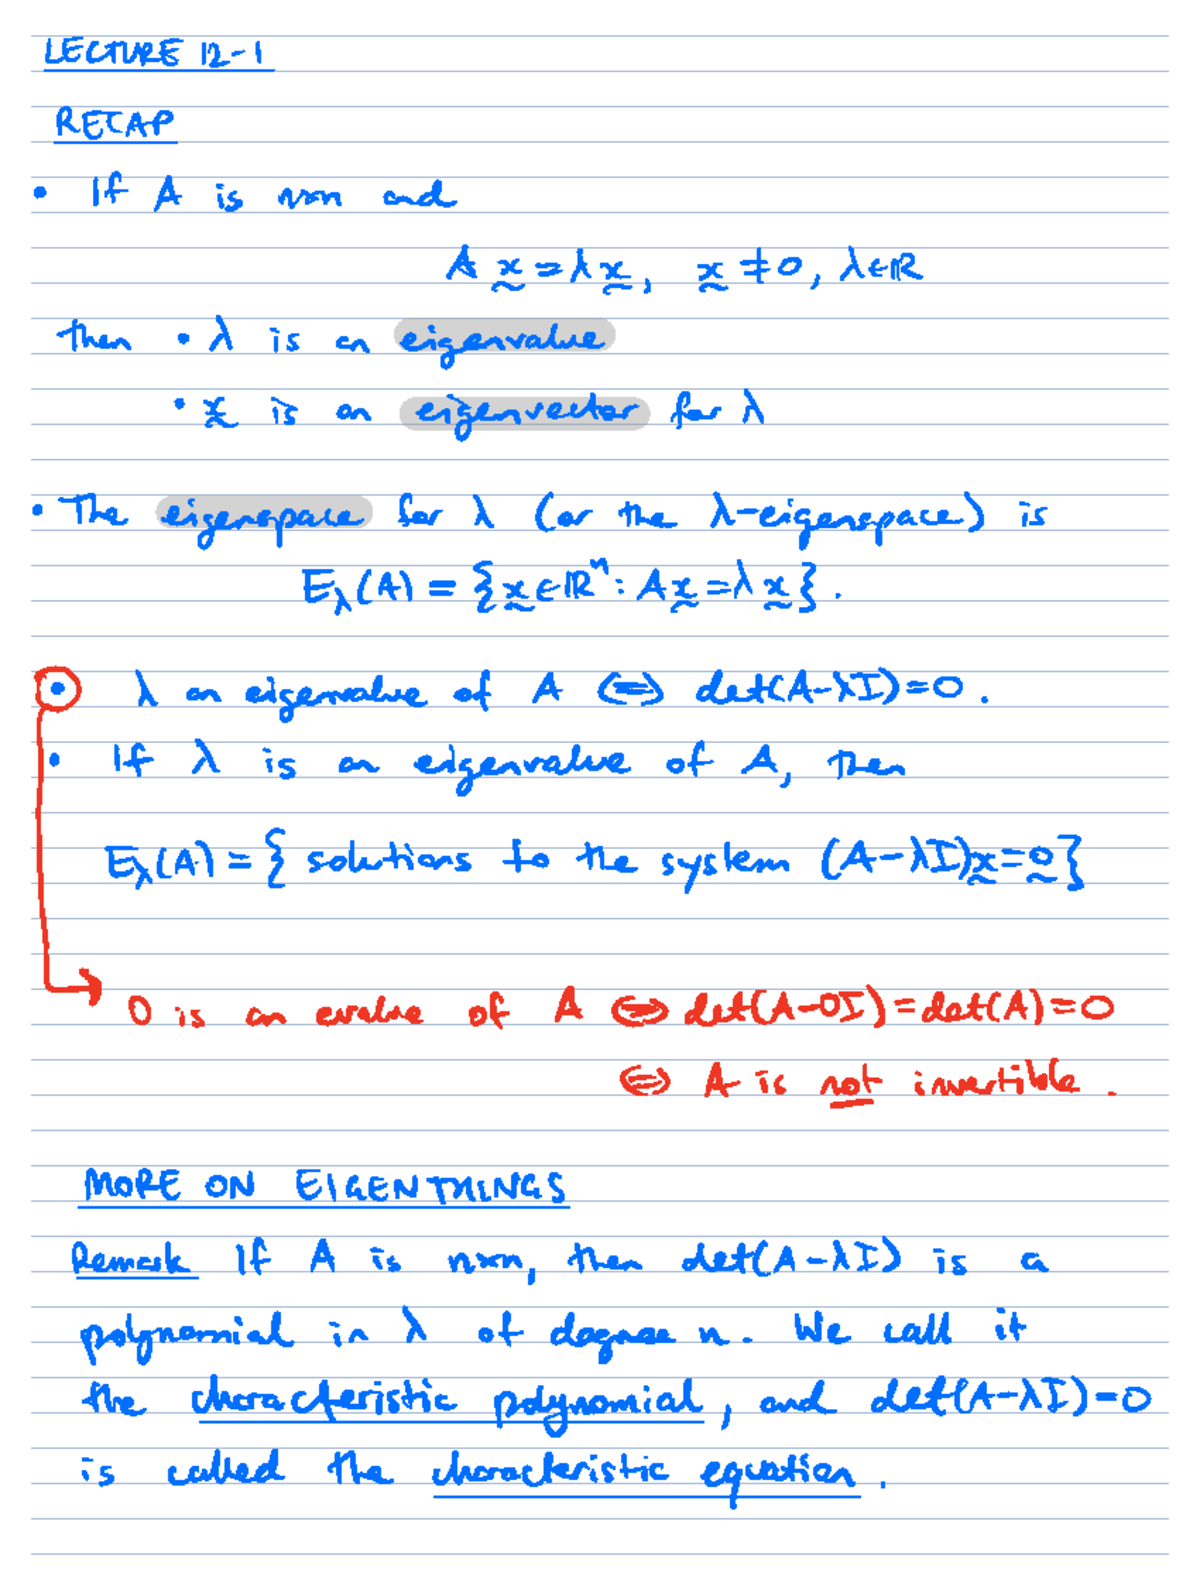 LECTURE 12-1
RECAP
• If A is n×n and
A x̰ = λ x̰, x̰ ≠ 0, λ∈ℝ
then • λ is an eigenvalue
• x̰ is an eigenvector for λ
• The eigenspace for λ (or the λ-eigenspace) is
E_λ(A) = {x̰ ∈ ℝⁿ : A x̰ = λ x̰}.
• λ an eigenvalue of A ⇔ det(A-λI)=0.
• If λ is an eigenvalue of A, then
E_λ(A) = { solutions to the system (A-λI)x̰=0̰}
0 is an evalue of A ⇔ det(A-0I)=det(A)=0
⇔ A is not invertible.
MORE ON EIGENTHINGS
Remark If A is n×n, then det(A-λI) is a
polynomial in λ of degree n. We call it
the characteristic polynomial, and det(A-λI)=0
is called the characteristic equation.